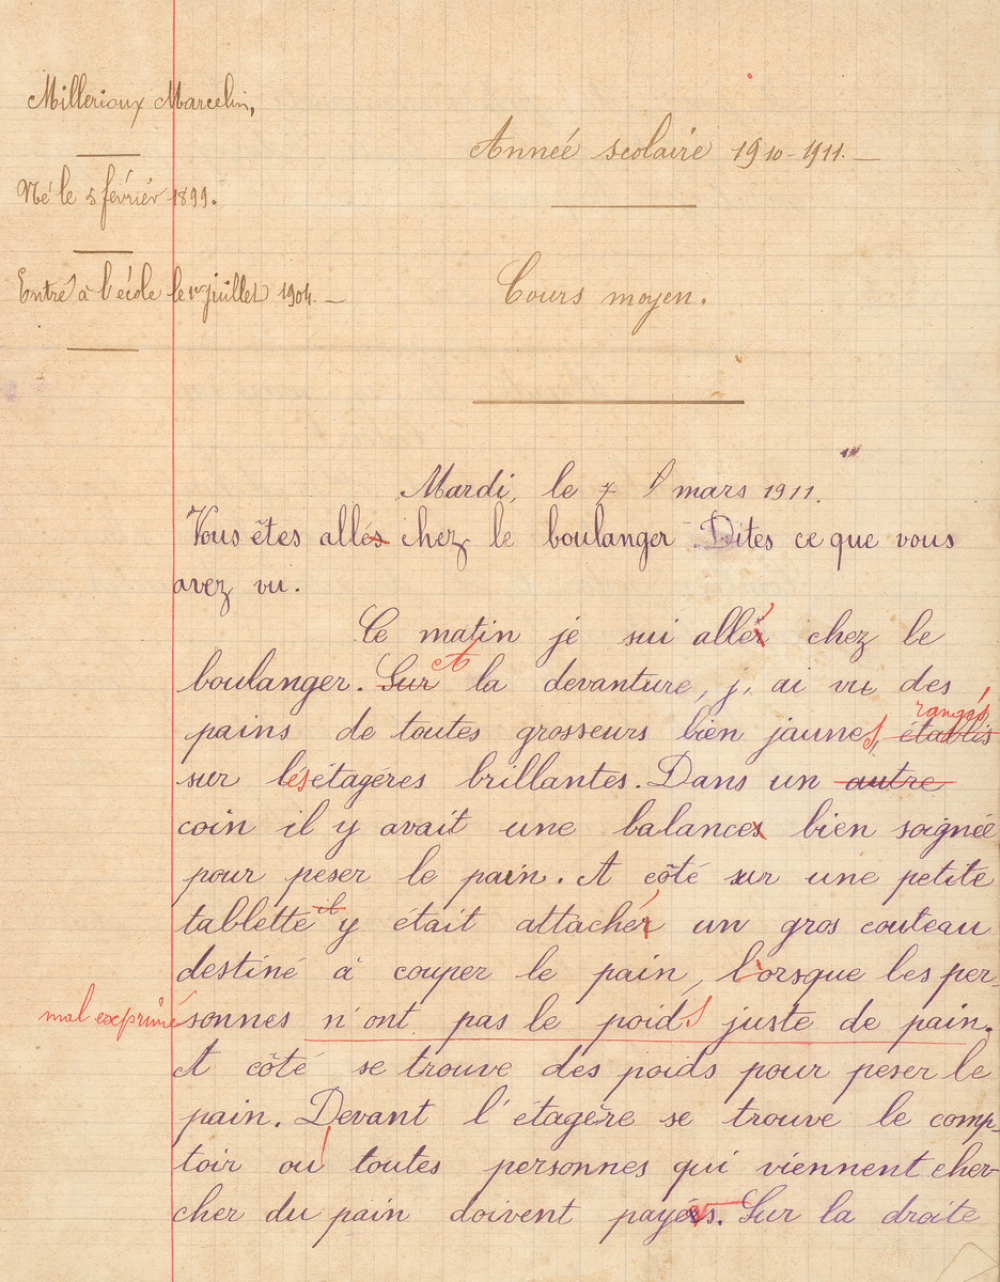 Millerioux Marcelin,
Année scolaire 1910-1911.
Né le 5 février 1899.
Entré à l'école le 1er juillet 1904.
Cours moyen.
Mardi, le 7 mars 1911.
Vous êtes allés chez le boulanger. Dites ce que vous
avez vu.
Ce matin je sui aller chez le
boulanger. Sur A la devanture, j, ai vu des
rangés
pains de toutes grosseurs bien jaunes, établis
sur les étagères brillantes. Dans un autre
coin il y avait une balances bien soignée
pour peser le pain. A côté sur une petite
tablette il y était attachér un gros couteau
destiné à couper le pain, lorsque les per-
mal exprimé
sonnes n'ont pas le poids juste de pain.
A côté se trouve des poids pour peser le
pain. Devant l'étagère se trouve le comp-
toir où toutes personnes qui viennent cher-
cher du pain doivent payer. Sur la droite